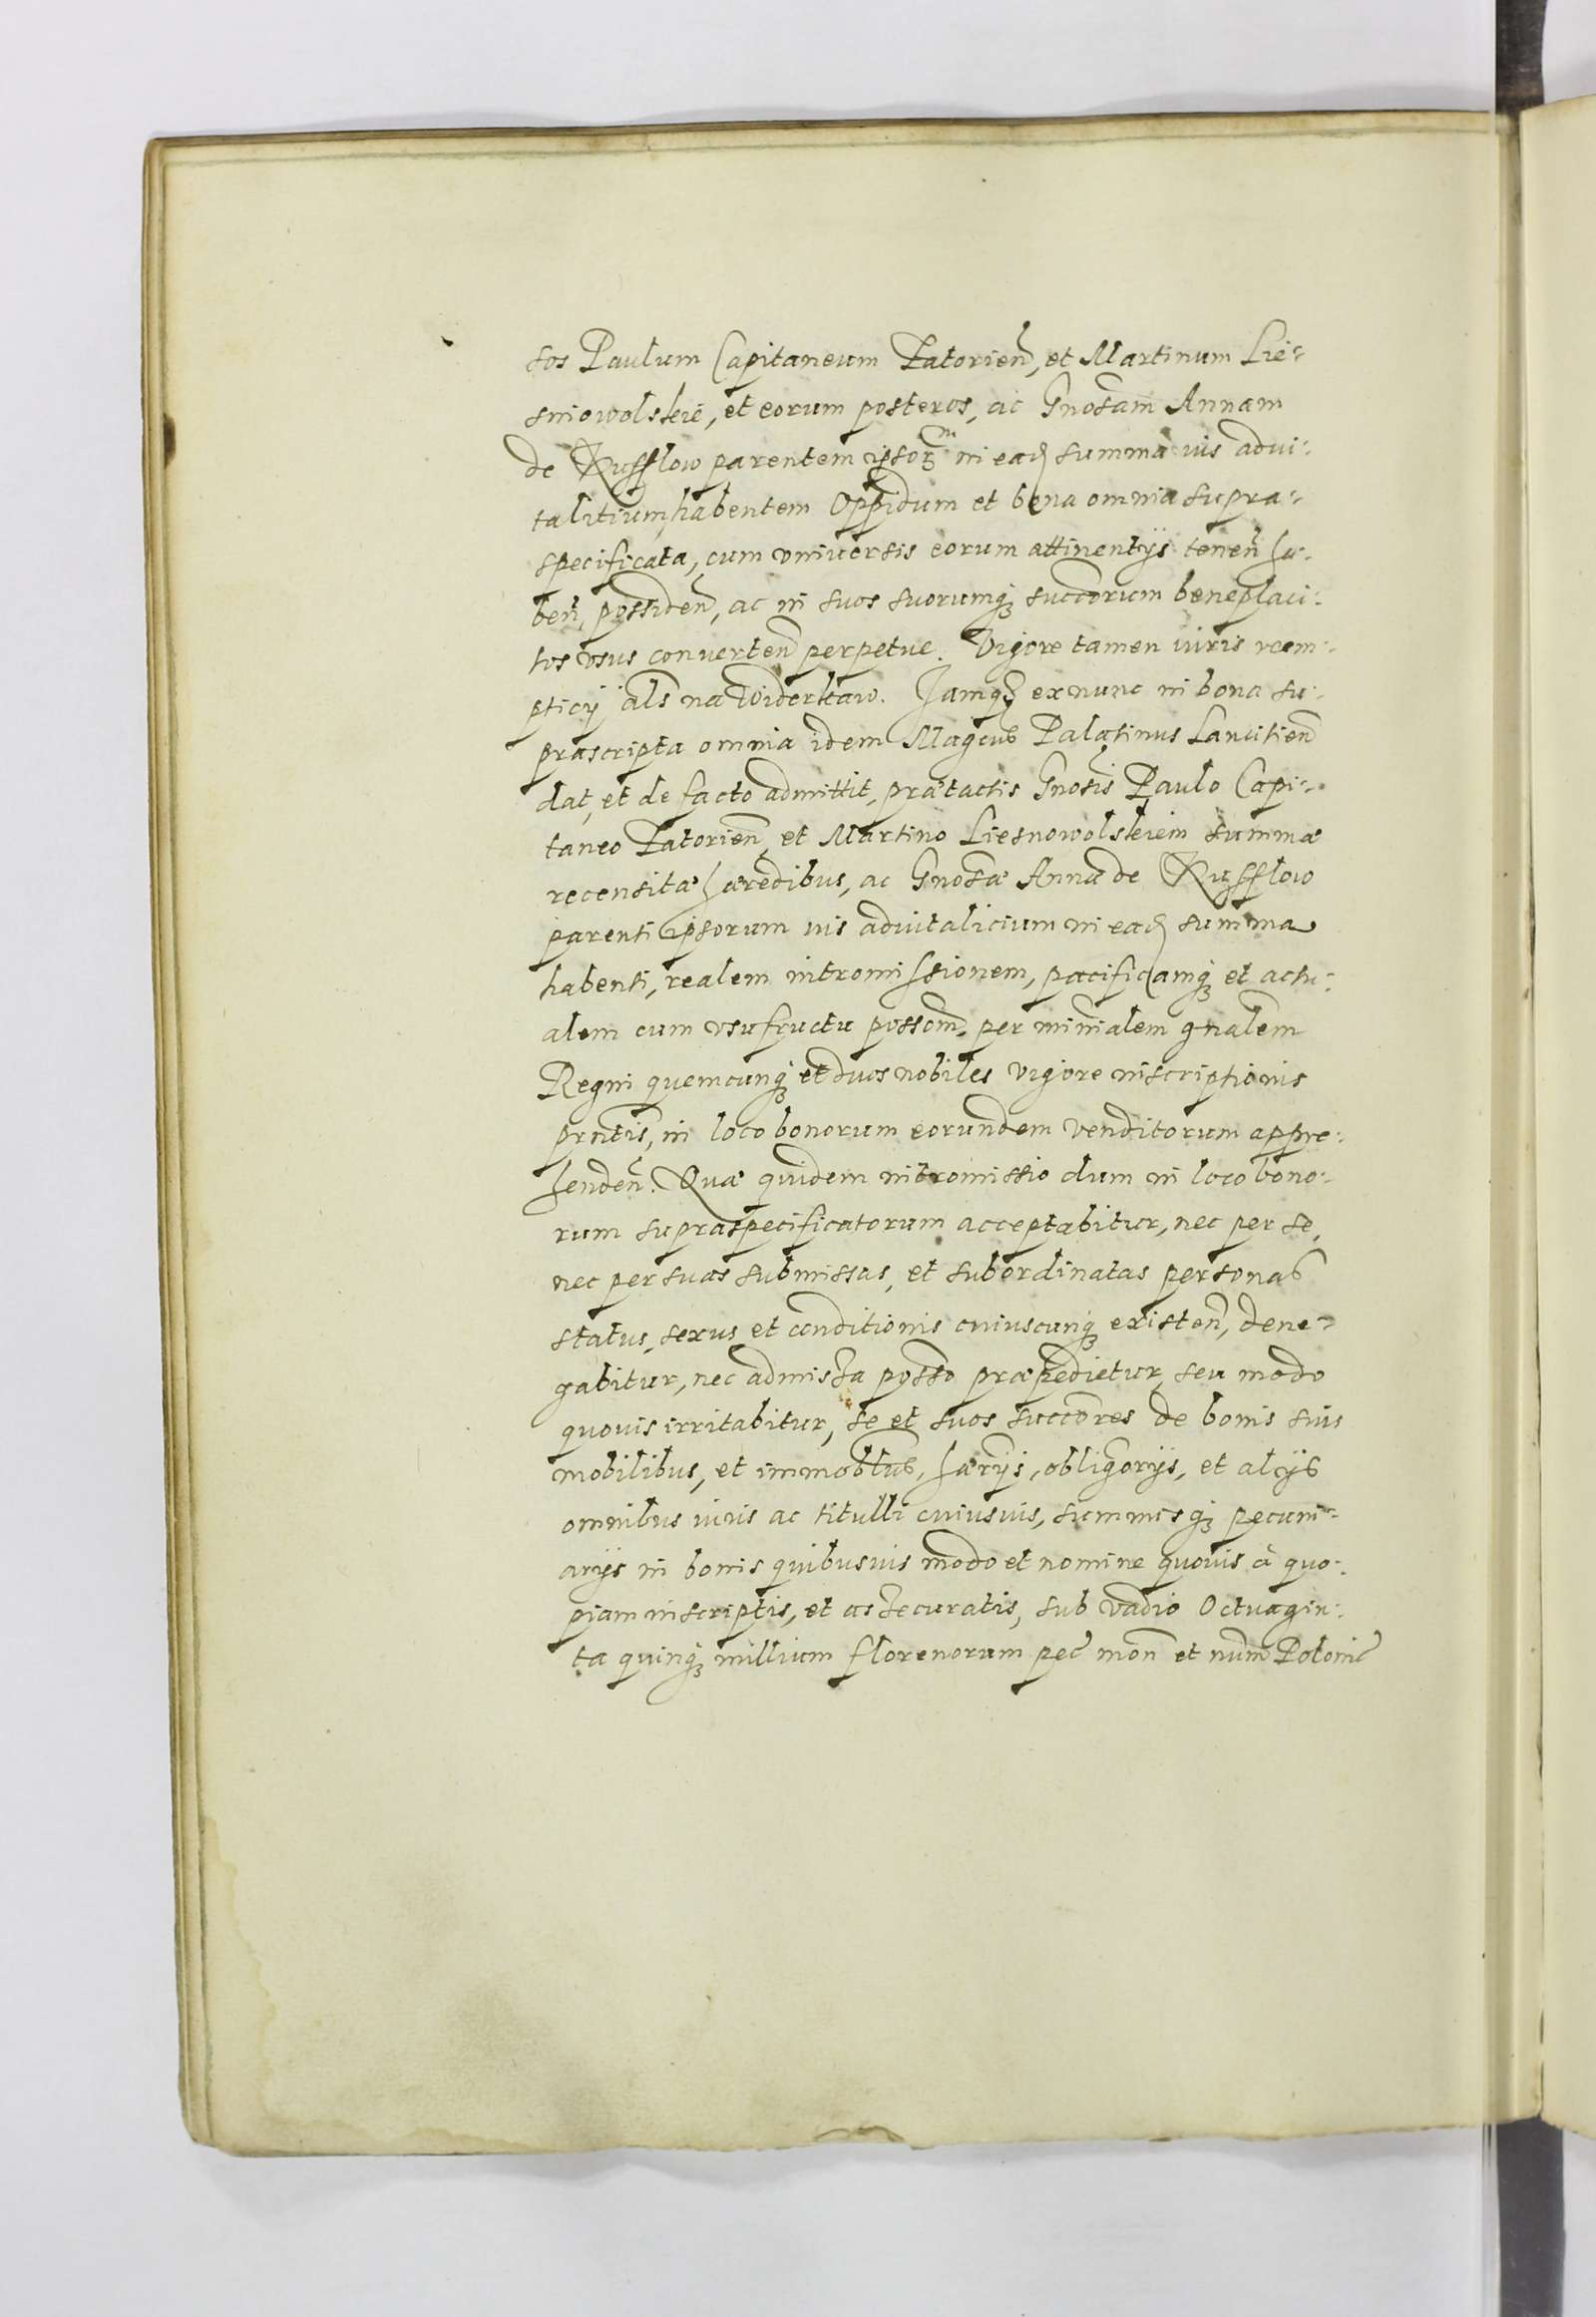 sos Paulum Capitaneum Latorien, et Martinum Lie-
sniowolskie, et eorum posteros, ac Gnosam Annam
de Kufflow parentem ipsor in ead summa ius advi-
talitium, habentem Oppidum et bona omnia supra-
specificata, cum universis eorum attinentijs tenen ha-
ben, possiden, ac in suos suorumq succorum beneplaci-
tos usus converten perpetue. Vigore tamen iuris reem-
pticij als na widerkaw. Jamq ex nunc in bona su-
prascripta omnia idem Magcus Palatinus Lancitien
dat, et de facto admittit, prætactis Gnosis Paulo Capi-
taneo Latorien, et Martino Liesnowolskiem summæ
recensitæ hæredibus, ac Gnosæ Annæ de Kufflow
parenti ipsorum ius advitalicium in ead summa
habenti, realem intromissionem, pacificamq et actu-
alem cum usufructu possom, per minialem gnalem
Regni quemcunq et duos nobiles vigore inscriptionis
prntis, in loco bonorum eorundem venditorum appre-
henden. Quæ quidem intromissio dum in loco bono-
rum supraspecificatorum acceptabitur, nec per se,
nec per suas submissas, et subordinatas personas
status, sexus, et conditionis cuiuscunq existen, dene-
gabitur, nec admissa posso præpedietur, seu modo
quovis irritabitur, se et suos succores de bonis suis
mobilibus, et immobilbus, hærijs, obligorijs, et alijs
omnibus iuris ac titulli cuiusvis, summisq pecuni-
arijs in bonis quibusvis modo et nomine quovis à quo-
piam inscriptis, et assecuratis, sub vadio Octuagin-
ta quinq millium florenorum pec mon et num Polonic